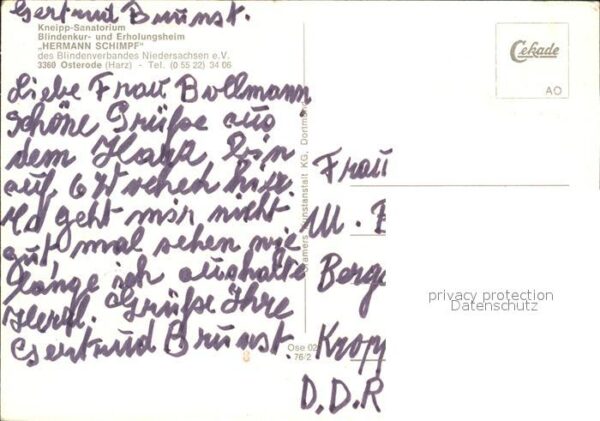 Gertrud Brunst.
Kneipp-Sanatorium
Blindenkur- und Erholungsheim
„HERMANN SCHIMPF"
des Blindenverbandes Niedersachsen e.V.
3360 Osterode (Harz) - Tel. (0 55 22) 34 06
Cekade
AO
Liebe Frau Bollmann
schöne Grüße aus
dem Harz, bin
auf 6 Wochen hier.
Es geht mir nicht
gut mal sehen wie
lange ich aushalte
Herzl. Grüße Ihre
Gertrud Brunst.
Cramers Kunstanstalt KG, Dortmund
Ose 02
76/2
Frau
M. B
Berge
Kropp
D.D.R
privacy protection
Datenschutz